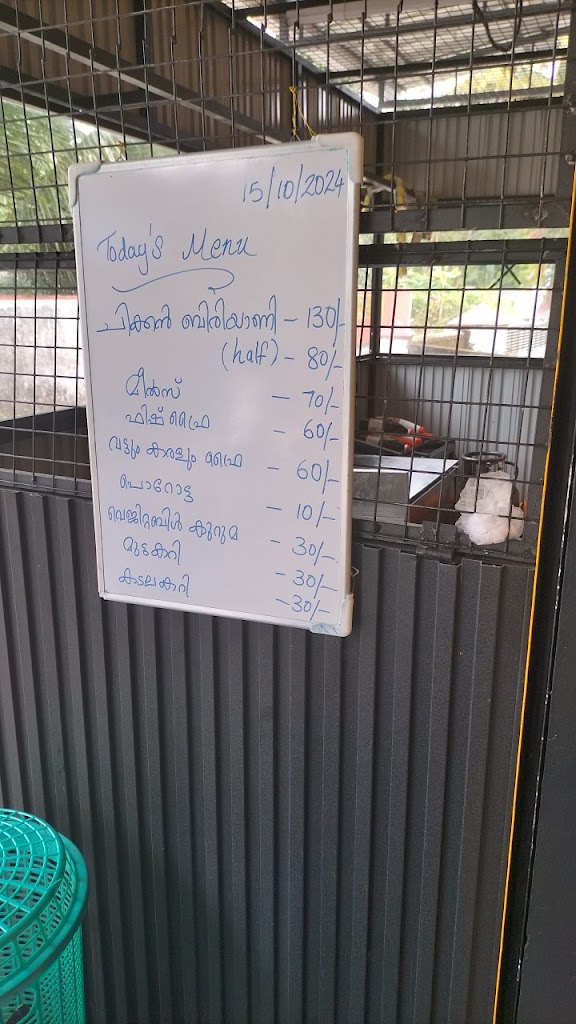 15/10/2024
Today's Menu
ചിക്കൻ ബിരിയാണി - 130/-
(half) - 80/-
മീൽസ് - 70/-
ഫിഷ് ഫ്രൈ - 60/-
വട്ടും കരളും ഫ്രൈ - 60/-
പൊറോട്ട - 10/-
വെജിറ്റബിൾ കുറുമ - 30/-
മുട്ടകറി - 30/-
കടലകറി - 30/-